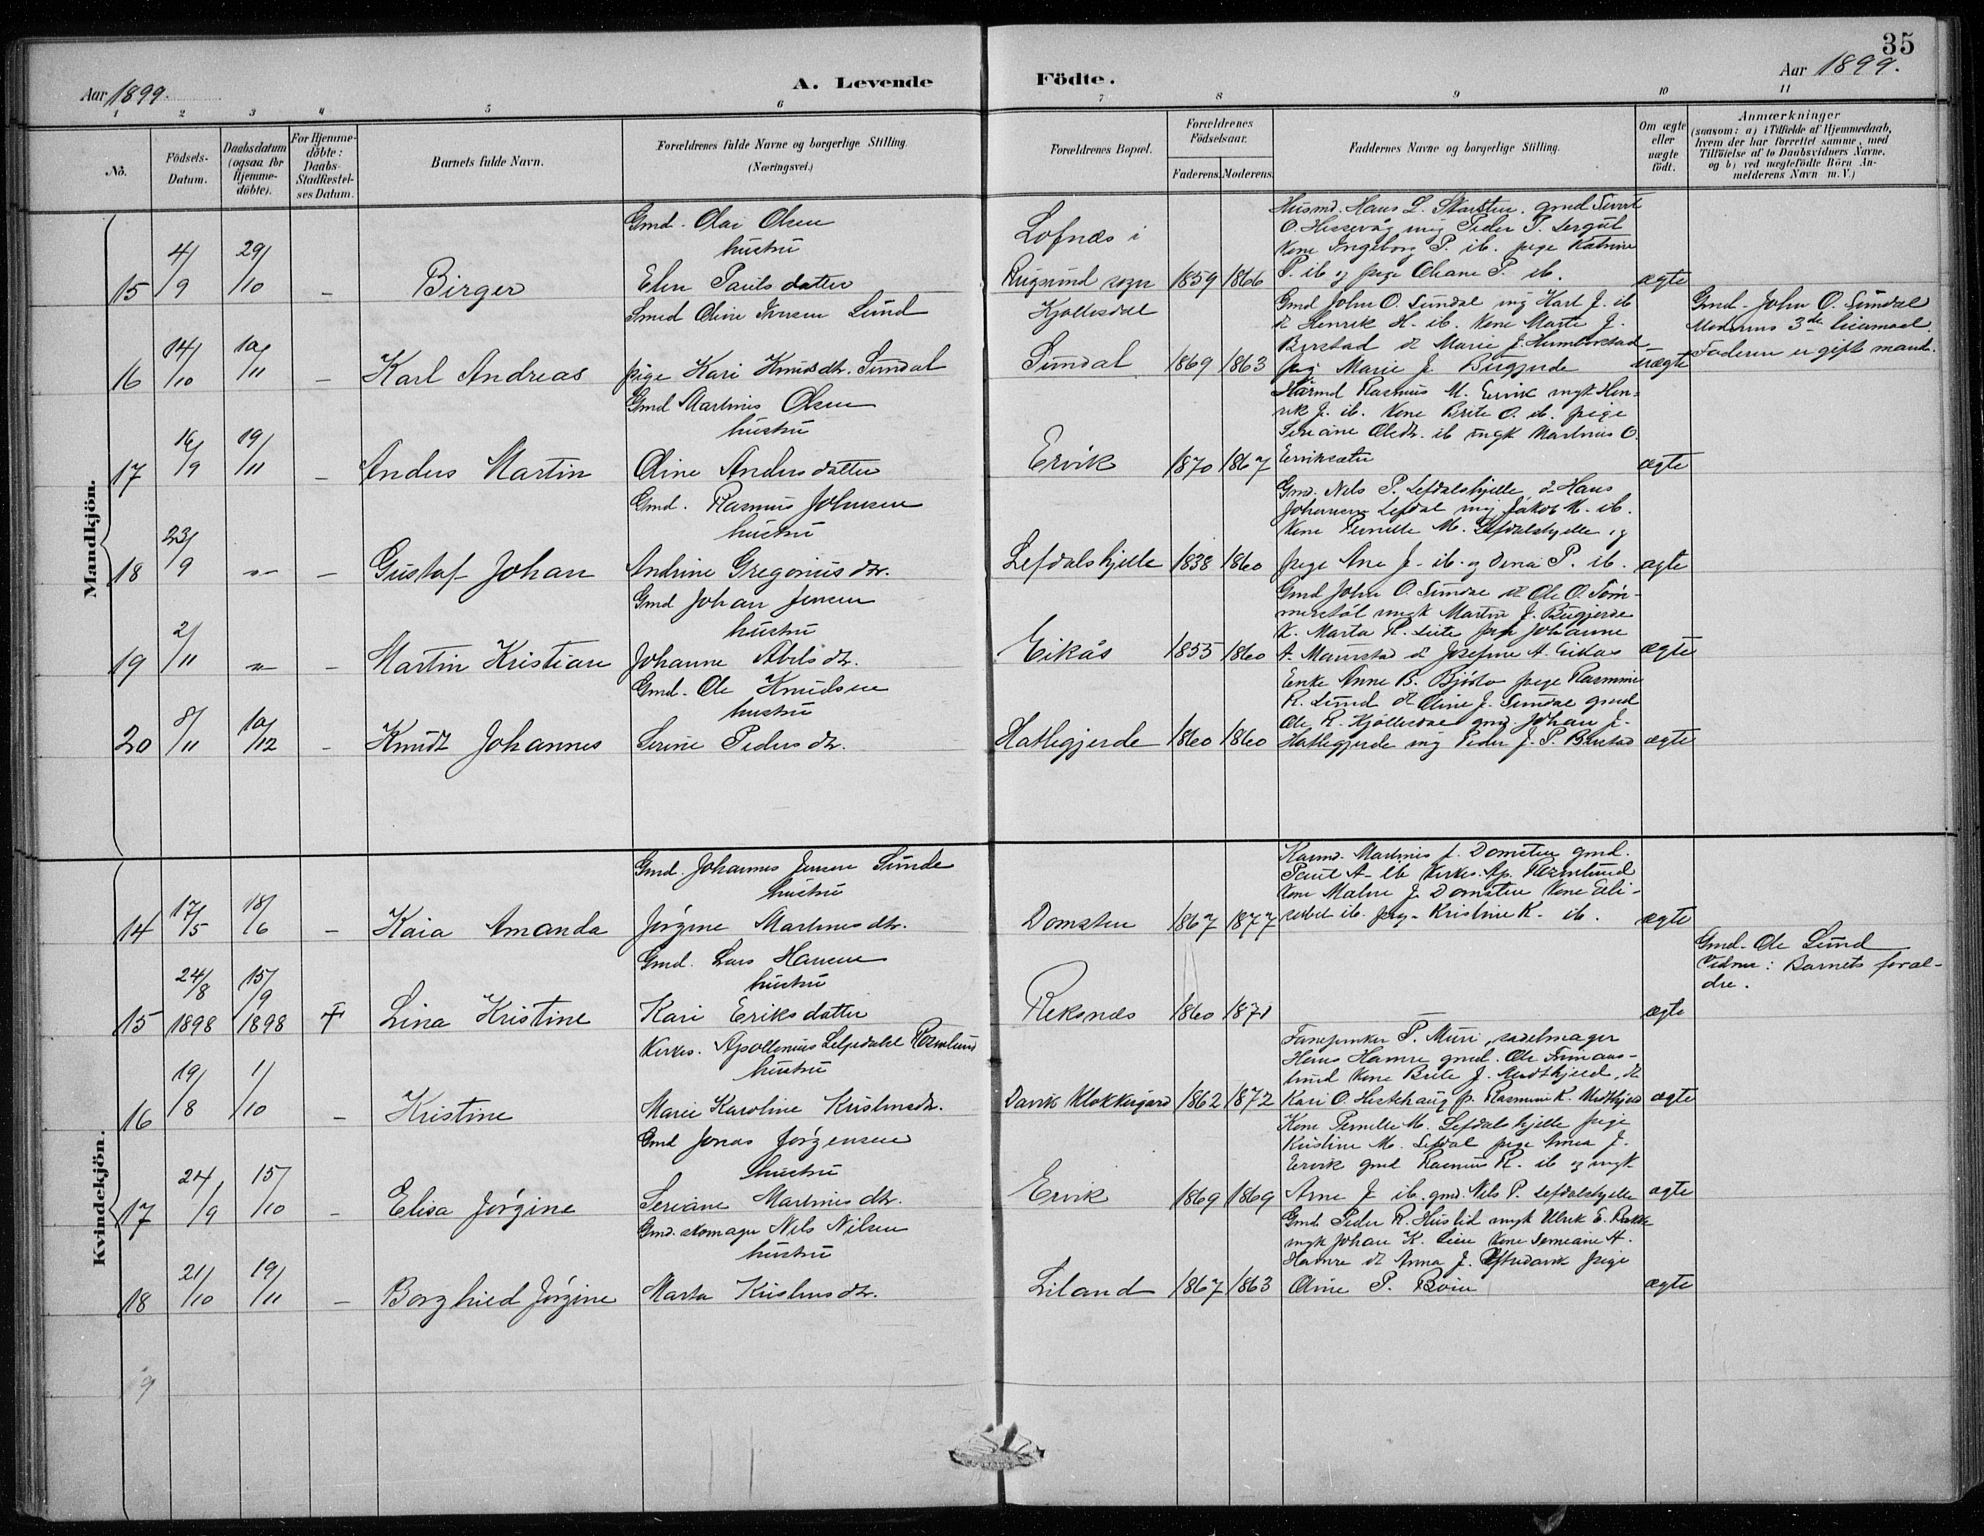 35
Aar 1899.
A. Levende
Födte.
Aar 1899.
1 2 3 4 5 6 7 8 9 10 11
No.
Födsels-Datum.
Daabsdatum (ogsaa for Hjemme-döbte).
For Hjemme-döbte: Daabs-Stadfæstel-ses Datum.
Barnets fulde Navn.
Forældrenes fulde Navne og borgerlige Stilling. (Næringsvei.)
Forældrenes Bopæl.
Forældrenes Födselsaar.
Faderens. Moderens.
Faddernes Navne og borgerlige Stilling.
Om ægte eller uægte födt.
Anmærkninger
(saasom: a) i Tilfælde af Hjemmedaab, hvem der har forrettet samme, med Tilföielse af to Daabsvidners Navne, og b) ved uægtefödte Börn An-melderens Navn m. V.)
Mandkjön.
15 4/9 29/10 – Birger
Gmd. Olai Olsen
hustru
Elen Paulsdatter
Lofnæs i
Rugsund sogn
1859 1866
Husmd. Hans L. Starsten. gmd Sivert
O. Hessevåg ung Peder P.
Kone Ingeborg P. ib. pige Katrine
P. ib og pige Ohane P. ib.
ægte
16 14/10 19/11 – Karl Andreas
Smed Oline Iversen Lund
pige Kari Knudsdtr. Sundal
Kjøllesdal
Sundal
1869 1863
Gmd John O. Sundal ung Karl J. ib
do Henrik H. ib. Kone Marte J.
Berstad do Marie J. Humborstad
pig Marie J. Bugjerde
uægte
Gmd. John O. Sundal
Moderens 3de leiermaal.
Faderen er gift mand.
17 16/9 19/11 – Anders Martin
Gmd Martinus Olsen
hustru
Oline Andersdatter
Ervik
1870 1867
Rasmus M. Ervik ungk Hen-
rik J. ib. Kone Brite O. ib. pige
Seriane Olsdtr. ib ungk Martinus O.
Erviksæter
ægte
18 23/9 –"– – Gustaf Johan
Gmd. Rasmus Johnsen
hustru
Andrine Gregoriusdtr.
Lefdalshjelle
1838 1860
Gmd. Nels P. Lefdalshjelle, do Hans
Johannes. Lefdal ung Jakob M. ib.
Kone Pernille M. Lefdalshjelle, og
pige Ane J. ib. og Dina P. ib.
ægte
19 2/11 –"– – Martin Kristian
Gmd Johan Jensen
hustru
Johanne Abelsdtr.
Eikås
1855 1860
Gmd John O. Sundal do Ole O. Töm-
merstöl ungk Martin J. Bugjerde
K. Marta R. Leite pige Johanne
A. Maurstad do Josefine A. Eikås
ægte
20 8/11 10/12 – Knudt Johannes
Gmd. Ole Knudsen
hustru
Serine Pedersdtr.
Hatlegjerde
1860 1860
Enke Anne B. pige Rasmine
R. Lund do Oline J. Sundal gmd
Ole R. Kjøllesdal gmd. Johan J.
Hatlegjerde ung Peder J. P. Berstad
ægte
Kvindekjön.
14 17/5 18/6 – Kaia Amanda
Gmd. Johannes Jensen Sunde
hustru
Jørgine Martinusdtr.
Domsten
1867 1877
Kaarmd. Martinus J. Domsten gmd.
Paul A. ib Kirkes. Ap. Romslund
Kone Malene J. Domsten Kone Eli-
sabet ib. pig. Kristine K. ib.
ægte
15 24/8 1898 15/9 1898 † Lina Kristine
Gmd. Lars Hansen
hustru
Kari Eriksdatter
Reksnæs
1860 1871
—
ægte
Gmd. Ole Lund
Vidner: Barnets foræl-
dre.
16 19/8 1/10 – Kristine
Kirkes. Apollonius Romslund
hustru
Marie Karoline Kristensdtr.
Davik Klokkergård
1862 1872
P. Muri, sadelmager
Hans Hamre gmd. Ole
Kone Brite J. Medhjeld, do
Kari O. Hestehaug p. Rasmine K. Medhjeld
ægte
17 24/9 15/10 – Elisa Jørgine
Gmd Jonas Jørgensen
hustru
Seriane Martinusdtr.
Ervik
1869 1869
Kone Pernille M. Lefdalshjelle pige
Kristine M. Lefdal pige Anna J.
Ervik gmd Rasmus R. ib og ungk
Arne J. ib. gmd. Nels P. Lefdalshjelle
ægte
18 21/10 19/11 – Borghild Jørgine
Gmd. skomager Nils Nilsen
hustru
Marta Kristensdtr.
Liland
1867 1863
Gmd Peder R. Huslid ungk Ulrik E.
ungk Johan K. Lien Kone A.
Hamre do Anna J. pige
Oline P. Böin
ægte
9